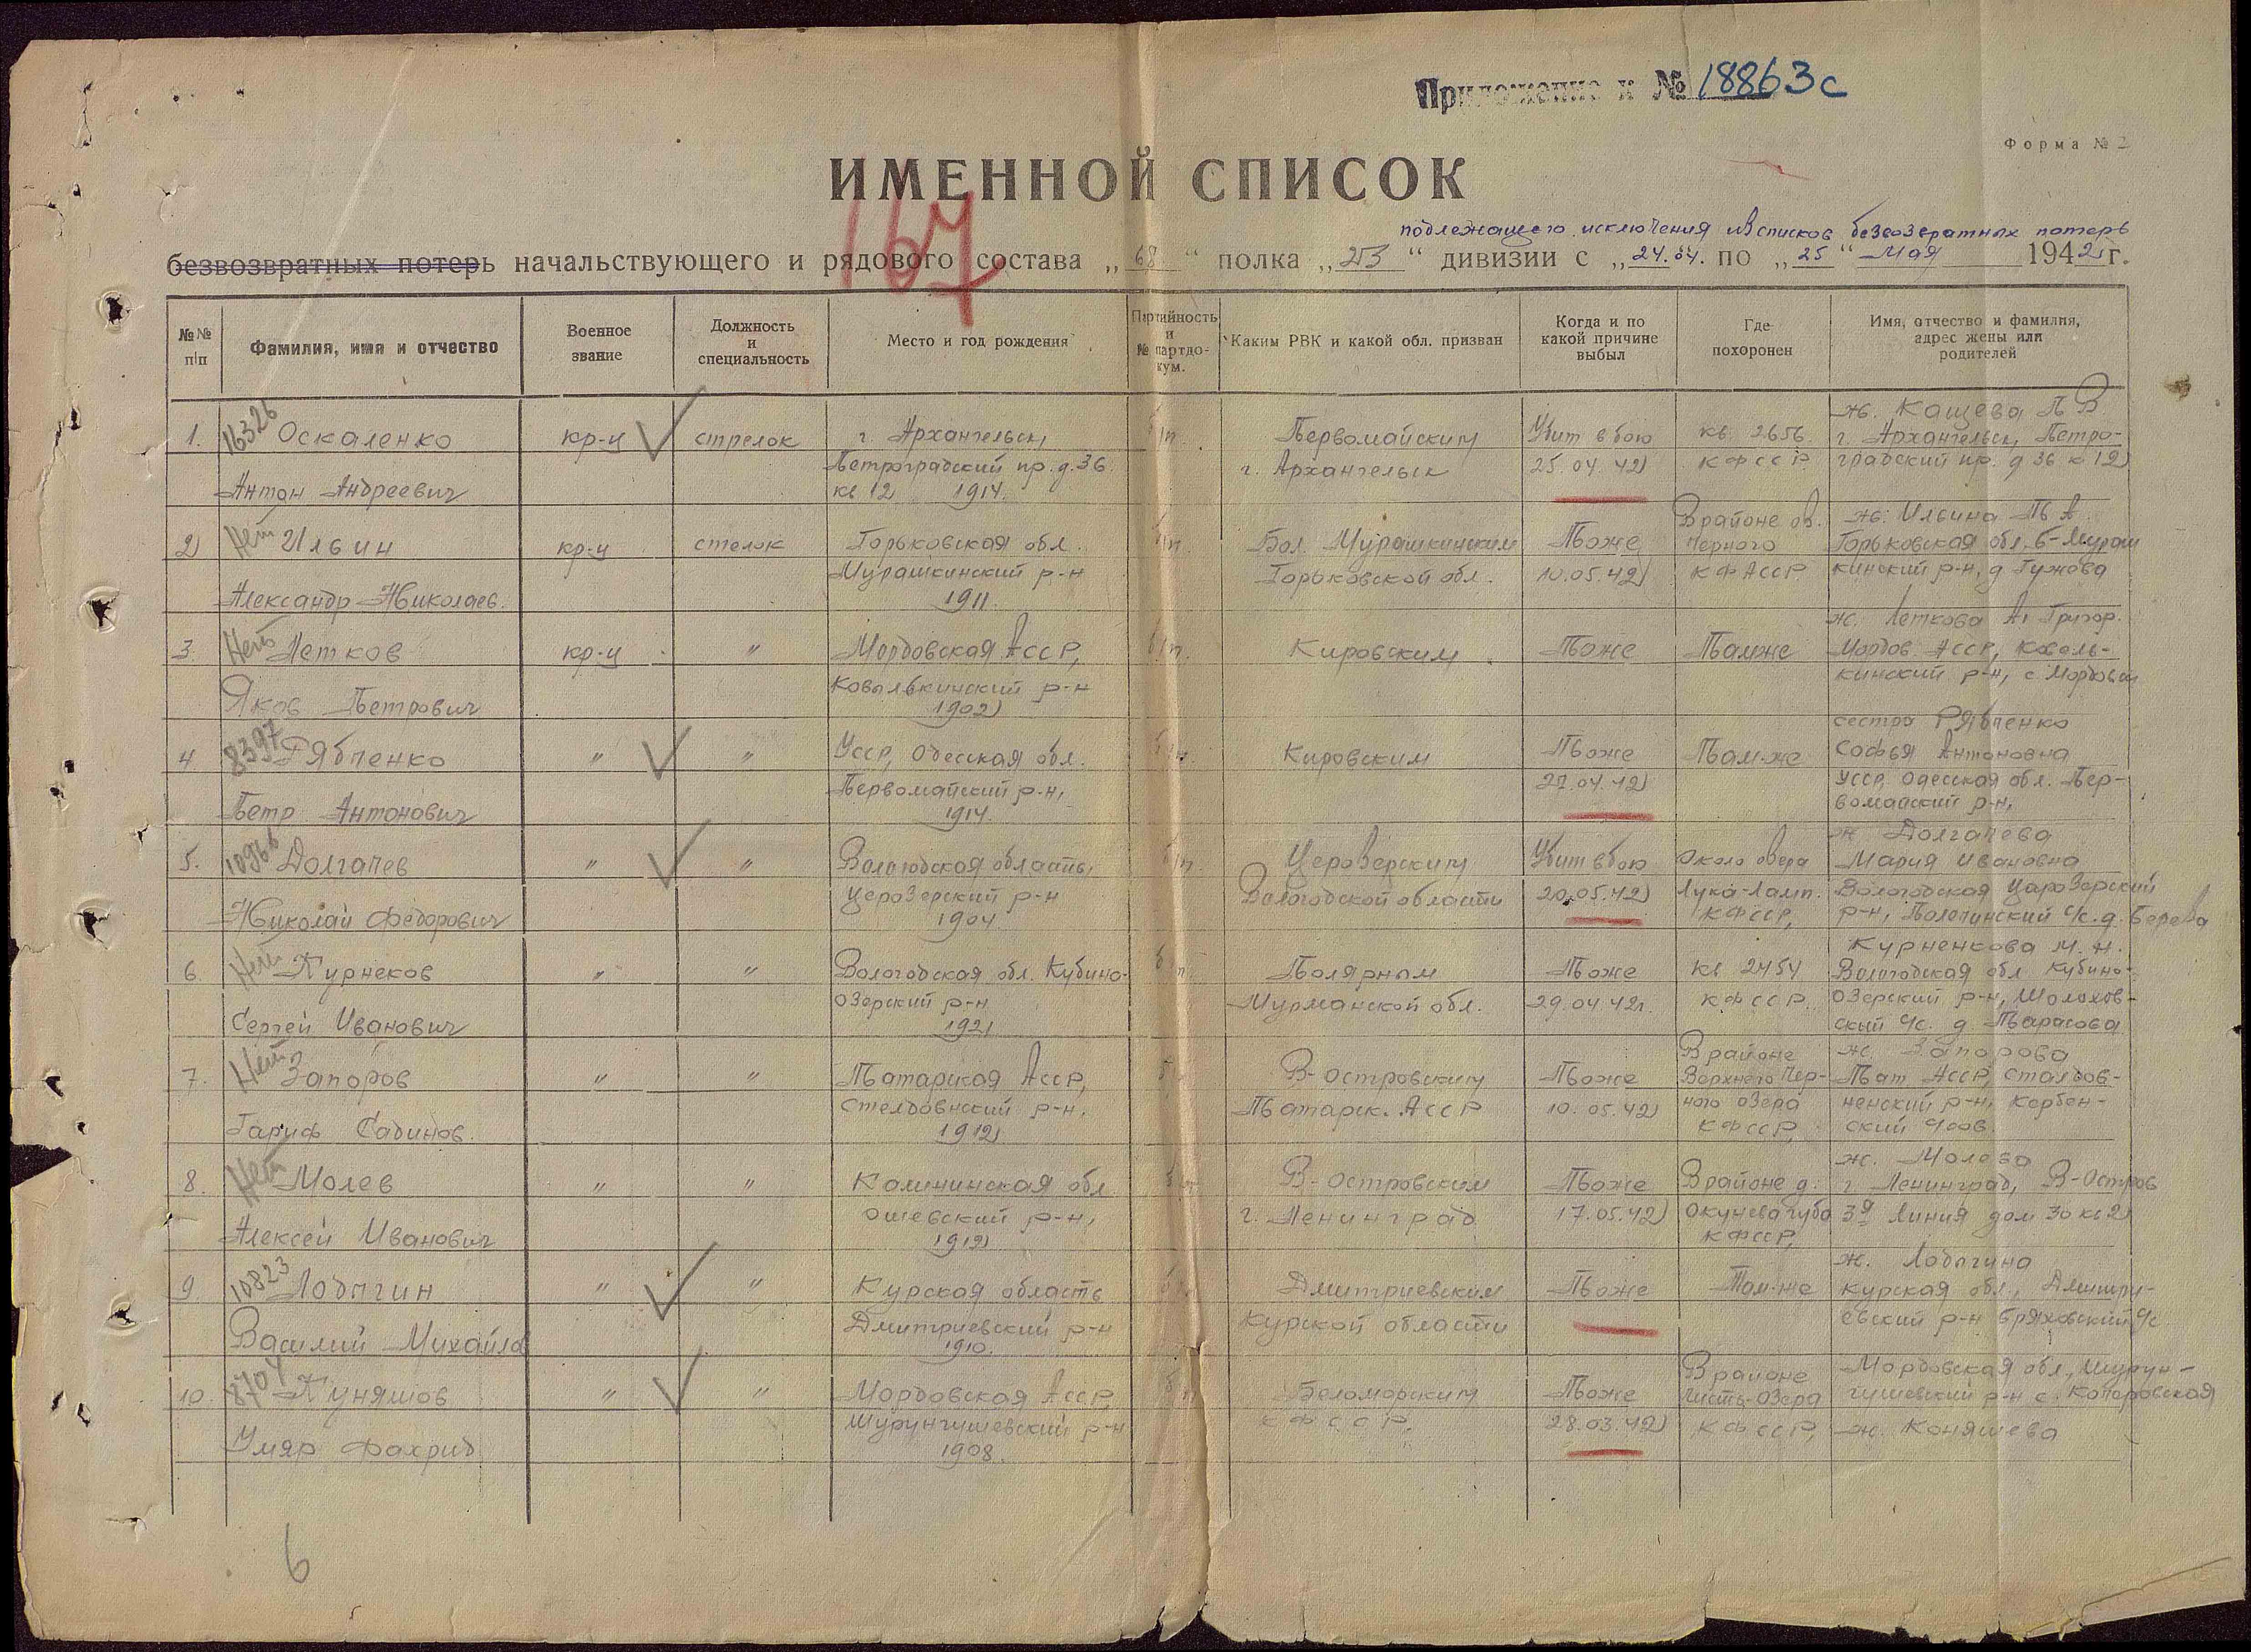 Приложение к № 18863с
Форма № 2
ИМЕННОЙ СПИСОК
167
подлежащего исключения из списков безвозвратных потерь
безвозвратных потерь начальствующего и рядового состава „68“ полка „23“ дивизии с „24.04. по „25“ Мая 1942 г.
№№ п/п
Фамилия, имя и отчество
Военное звание
Должность и специальность
Место и год рождения
Партийность и № партдокум.
Каким РВК и какой обл. призван
Когда и по какой причине выбыл
Где похоронен
Имя, отчество и фамилия, адрес жены или родителей
1. 16326 Оскаленко кр-ц стрелок г. Архангельск, б/п. Первомайским Убит в бою кв. 2656. ж. Кащева П В
Антон Андреевич Петроградский пр. д. 36. г. Архангельск 25.04.42 КФССР г. Архангельск, Петро-
кв 12 1914. градский пр. д 36 к 12
2 Нет Ильин кр-ц стелок Горьковская обл. б/п. Бол Мурашкинским Тоже В районе оз. ж. Ильина
Александр Николаев. Мурашкинский р-н Горьковской обл. 10.05.42 Черного Горьковская обл. Б-Мураш
1911. КФАССР кинский р-н, д Гужова
3. Нет Летков кр-ц " Мордовская АССР, б/п. Кировским Тоже Тамже ж. Леткова А. Григор.
Яков Петрович Ковылкинский р-н Мордов. АССР, Ковыль-
1902 кинский р-н, с Мордовск
4. 8397 Рябченко " " УССР, Одесская обл. Кировским Тоже Тамже сестра Рябченко
Петр Антонович Первомайский р-н, 27.04.42 Софья Антоновна
1914. УССР, Одесская обл. Пер-
вомайский р-н,
5. 10966 Долгачев " " Вологодская область, б/п. Церозерским Убит в бою Около озера ж Долгачева
Николай Федорович Церозерский р-н Вологодской области 20.05.42 Лука-Ламп. Мария Ивановна
1904 КФССР, Вологодская Царозерский
р-н, с/с. д.
6. Нет Курнеков " " Вологодская обл. Кубино- Полярным Тоже Кв 2454 Курненкова М. Н.
Сергей Иванович озерский р-н Мурманской обл. 29.04.42г. КФССР. Вологодская обл Кубино-
1921 озерский р-н, Шолохов-
ский с/с. д Тарасова
7. Нет Запоров " " Татарская АССР, В-островским Тоже В районе ж. Запорова
Гариф Садинов. р-н. Татарск. АССР 10.05.42 Верхнего Чер- Тат АССР,
1912 ного озера р-н,
КФССР,
8. Нет Молев " " Калининская обл В-островским Тоже В районе д. ж. Молева
Алексей Иванович Ошевский р-н, г. Ленинград 17.05.42 Окунева губа г Ленинград, В-Остров
1912 КФССР, 3я Линия дом 30 кв 2
9. 10823 Лобыгин " " Курская область Дмитриевским Тоже Там-же ж. Лобыгина
Василий Михайлов Дмитриевский р-н Курской области Курская обл., Дмитри-
1910. евский р-н с/с
10. 8704 Куняшов " " Мордовская АССР, Беломорским Тоже В районе Мордовская обл.,
Умяр Фахрид р-н КФССР. 28.03.42 Кисть-озера гушевский р-н с.
1908. КФССР, ж. Коняшева
6